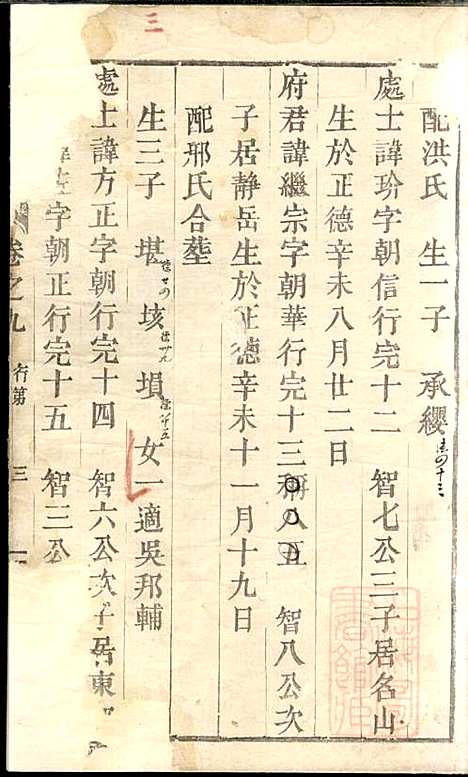 三
配洪氏 生一子 承纓
處士諱玠字朝信行完十二 智七公三子居名山
生於正德辛未八月廿二日
府君諱繼宗字朝華行完十三 智八公次
子居靜岳生於正德辛未十一月十九日
配邢氏合塟
生三子 堪 垓 塤 女一適吳邦輔
處士諱方正字朝行完十四 智六公次子居東
字朝正行完十五 智三公
卷之九 行第 三